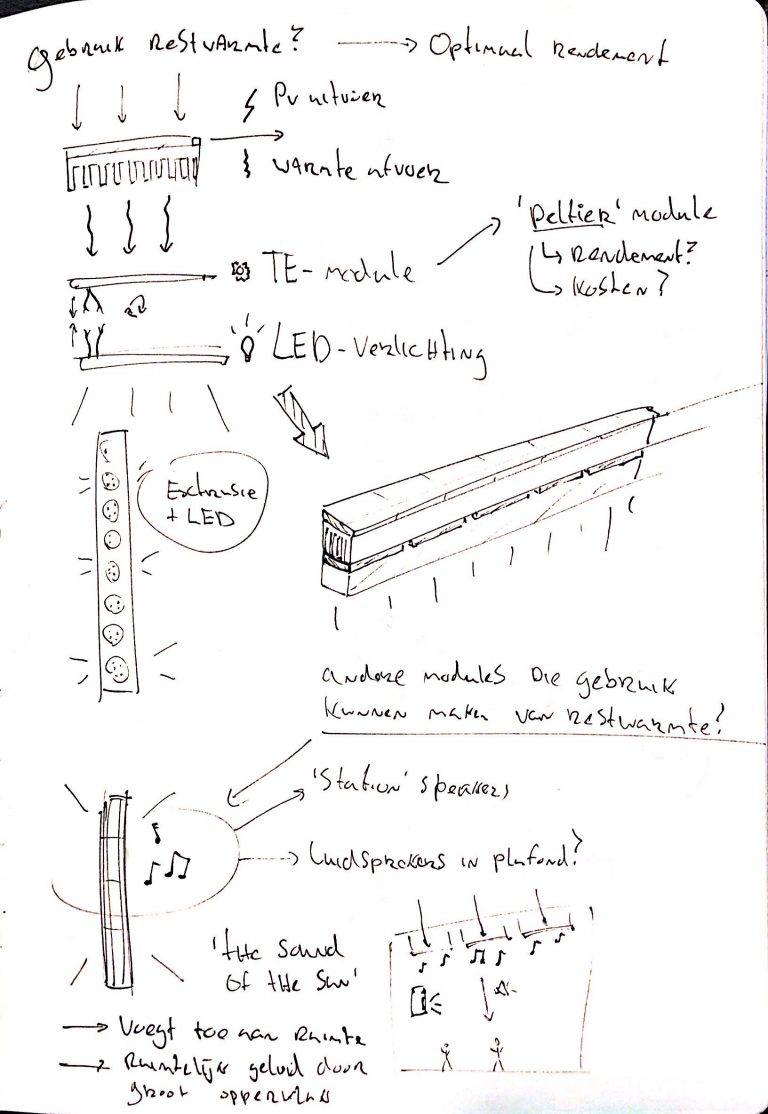 Gebruik restwarmte? → Optimaal rendement
PV uitvoer
warmte afvoer
'Peltier' module
↳ Rendement?
↳ Kosten?
TE-module
LED-verlichting
+ LED
andere modules die gebruik
kunnen maken van restwarmte?
'Station' speakers
Luidsprekers in plafond?
'the sound
of the sun'
→ Voegt toe aan ruimte
→ Ruimtelijk geluid door
groot oppervlak